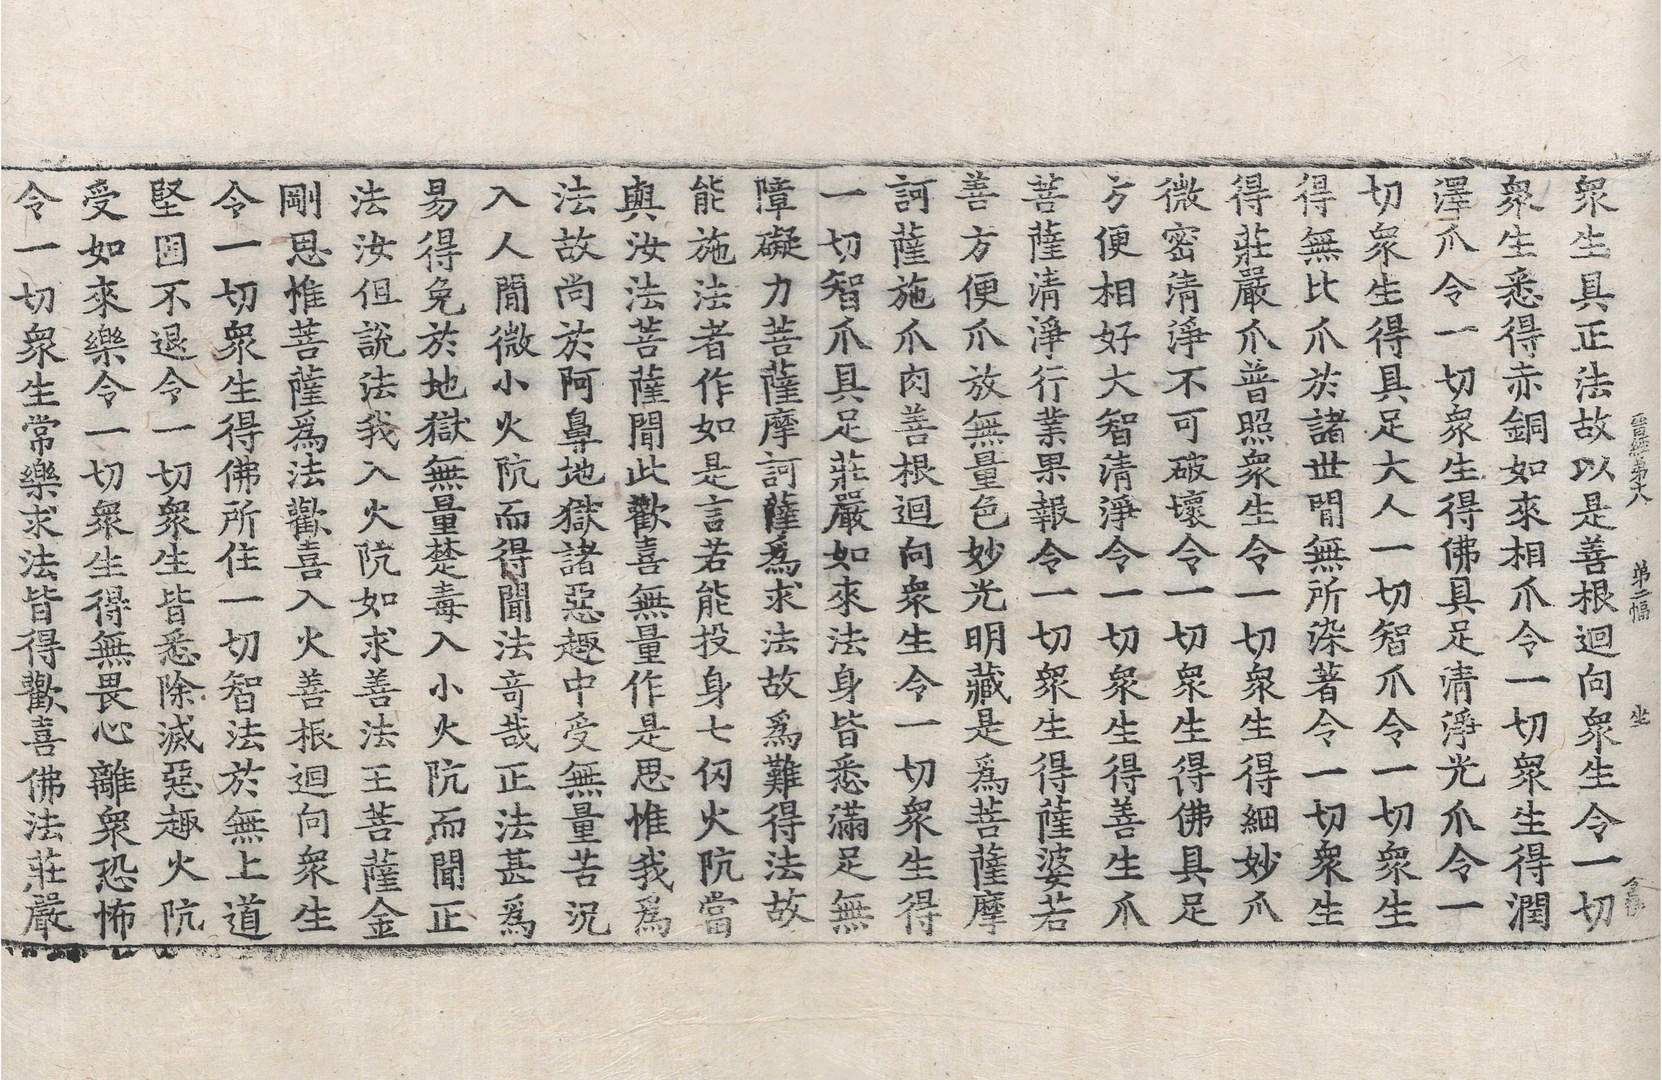 眾生具正法故以是善根迴向眾生令一切
眾生悉得赤銅如來相爪令一切眾生得潤
澤爪令一切眾生得佛具足清淨光爪令一
切眾生得具足大人一切智爪令一切眾生
得無比爪於諸世閒無所染著令一切眾生
得莊嚴爪普照眾生令一切眾生得細妙爪
微密清淨不可破壞令一切眾生得佛具足
方便相好大智清淨令一切眾生得善生爪
菩薩清淨行業果報令一切眾生得薩婆若
善方便爪放無量色妙光明藏是為菩薩摩
訶薩施爪肉善根迴向眾生令一切眾生得
一切智爪具足莊嚴如來法身皆悉滿足無
障礙力菩薩摩訶薩為求法故為難得法故
能施法者作如是言若能投身七仞火阬當
與汝法菩薩聞此歡喜無量作是思惟我為
法故尚於阿鼻地獄諸惡趣中受無量苦況
入人閒微小火阬而得聞法竒哉正法甚為
易得免於地獄無量楚毒入小火阬而聞正
法汝但說法我入火阬如求善法王菩薩金
剛思惟菩薩為法歡喜入火善根迴向眾生
令一切眾生得佛所住一切智法於無上道
堅固不退令一切眾生皆悉除滅惡趣火阬
受如來樂令一切眾生得無畏心離眾恐怖
令一切眾生常樂求法皆得歡喜佛法莊嚴
晉經第十八 第二幅 坐